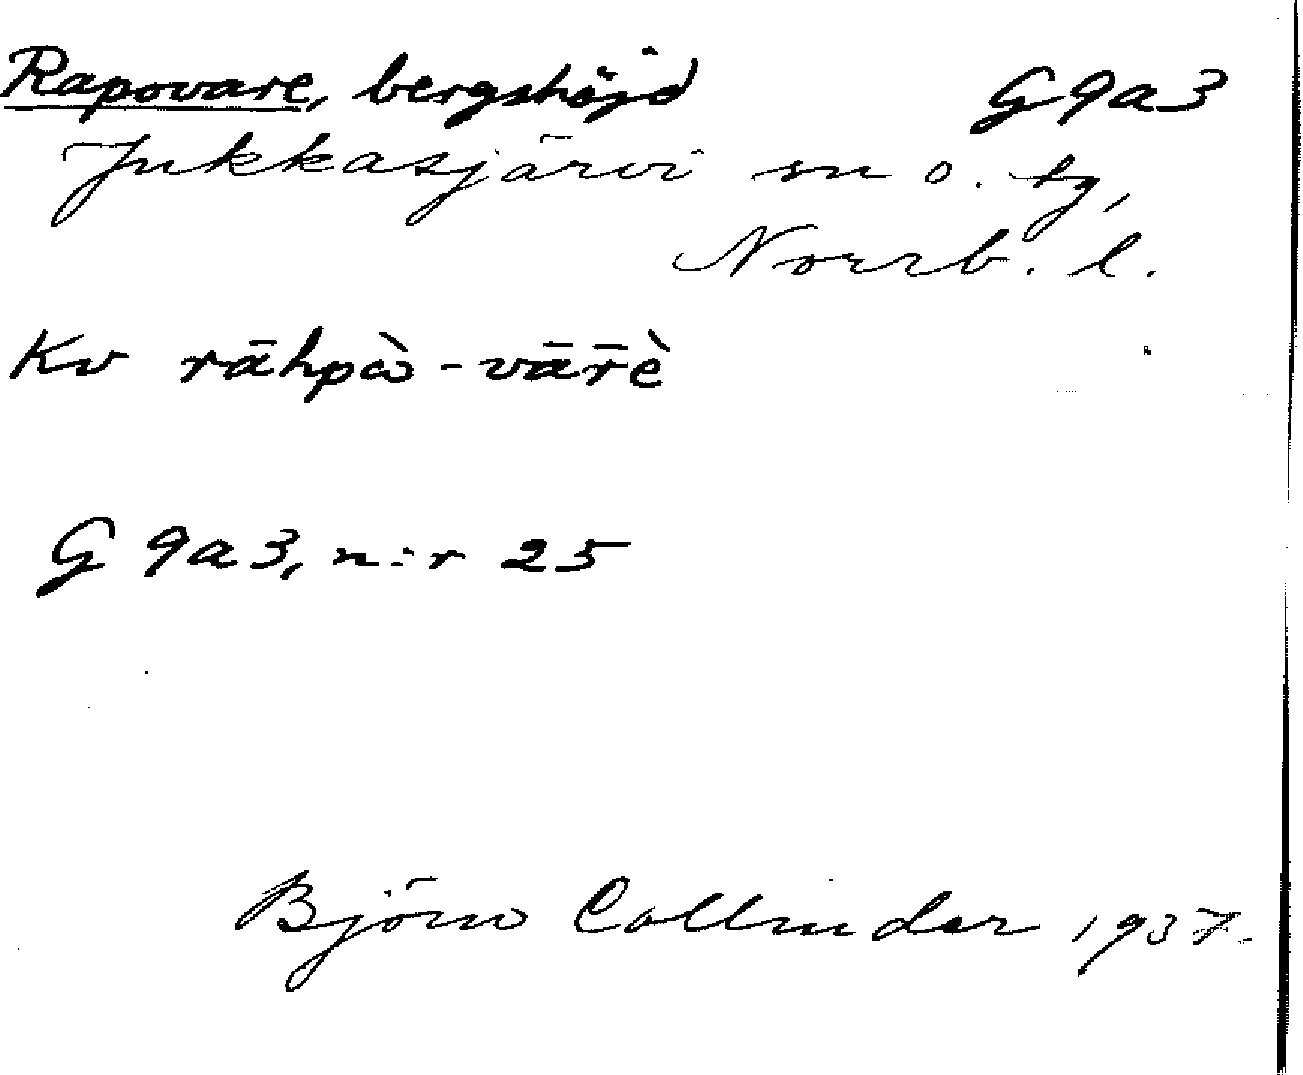 Rapovare, bergshöjd G 9a3
Jukkasjärvi sn o. tg,
Norrb. l.
Kv rāhpȧ̀ - vār̄è
G 9a3, n:r 25
Björn Collinder 1937.